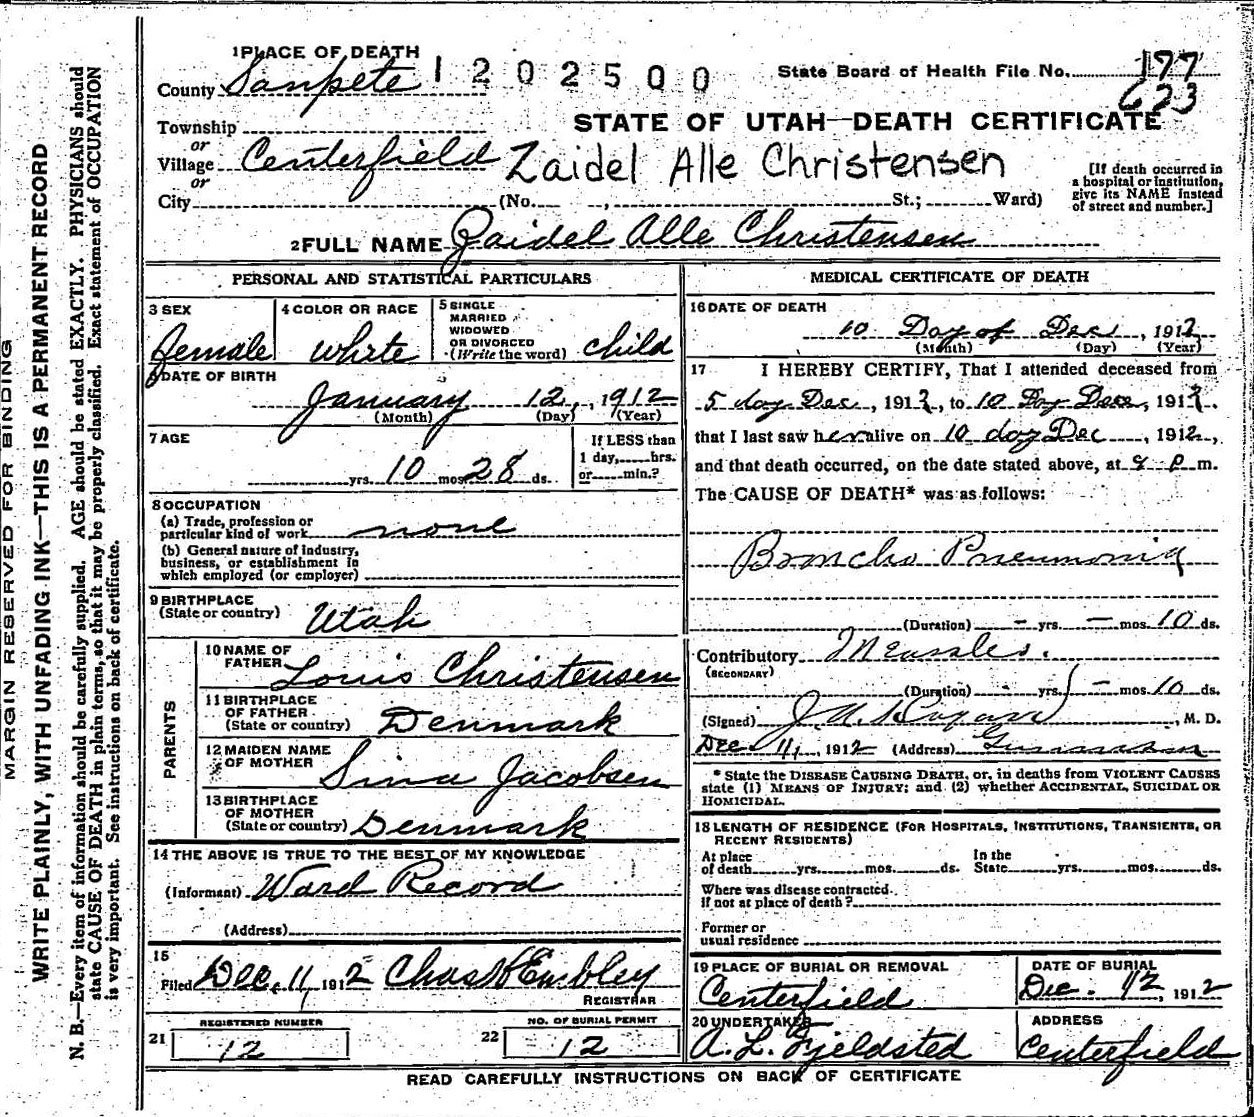 MARGIN RESERVED FOR BINDING
WRITE PLAINLY, WITH UNFADING INK—THIS IS A PERMANENT RECORD
N. B.—Every item of information should be carefully supplied. AGE should be stated EXACTLY. PHYSICIANS should
state CAUSE OF DEATH in plain terms, so that it may be properly classified. Exact statement of OCCUPATION
is very important. See instructions on back of certificate.
1 PLACE OF DEATH
County Sanpete 1202500
State Board of Health File No. 177
623
Township
or
Village Centerfield
or
City (No. , St.; Ward)
STATE OF UTAH—DEATH CERTIFICATE
Zaidel Alle Christensen
[If death occurred in
a hospital or institution,
give its NAME instead
of street and number.]
2 FULL NAME Zaidel Alle Christensen
PERSONAL AND STATISTICAL PARTICULARS
3 SEX
female
4 COLOR OR RACE
white
5 SINGLE
MARRIED
WIDOWED
OR DIVORCED
(Write the word) child
6 DATE OF BIRTH
January 12, 1912
(Month) (Day) (Year)
7 AGE
yrs. 10 mos. 28 ds.
If LESS than
1 day, hrs.
or min.?
8 OCCUPATION
(a) Trade, profession or
particular kind of work none
(b) General nature of industry,
business, or establishment in
which employed (or employer)
9 BIRTHPLACE
(State or country) Utah
PARENTS
10 NAME OF
FATHER Louis Christensen
11 BIRTHPLACE
OF FATHER
(State or country) Denmark
12 MAIDEN NAME
OF MOTHER Sina Jacobsen
13 BIRTHPLACE
OF MOTHER
(State or country) Denmark
14 THE ABOVE IS TRUE TO THE BEST OF MY KNOWLEDGE
(Informant) Ward Record
(Address)
15
Filed Dec. 11, 1912 Chas Embley
REGISTRAR
21 REGISTERED NUMBER
12
22 NO. OF BURIAL PERMIT
12
MEDICAL CERTIFICATE OF DEATH
16 DATE OF DEATH
10 Day of Dec, 1912
(Month) (Day) (Year)
17 I HEREBY CERTIFY, That I attended deceased from
5 day Dec, 1912, to 10 Day Dec, 1912,
that I last saw her alive on 10 day Dec, 1912,
and that death occurred, on the date stated above, at p m.
The CAUSE OF DEATH* was as follows:
Broncho Pneumonia
(Duration) - yrs. - mos. 10 ds.
Contributory Measles.
(SECONDARY)
(Duration) - yrs. - mos. 10 ds.
(Signed) J A , M. D.
Dec 11, 1912 (Address)
* State the DISEASE CAUSING DEATH, or, in deaths from VIOLENT CAUSES
state (1) MEANS OF INJURY; and (2) whether ACCIDENTAL, SUICIDAL OR
HOMICIDAL.
18 LENGTH OF RESIDENCE (FOR HOSPITALS, INSTITUTIONS, TRANSIENTS, OR
RECENT RESIDENTS)
At place
of death yrs. mos. ds.
In the
State yrs. mos. ds.
Where was disease contracted
If not at place of death?
Former or
usual residence
19 PLACE OF BURIAL OR REMOVAL
Centerfield
DATE OF BURIAL
Dec. 12, 1912
20 UNDERTAKER
A. L. Fjeldsted
ADDRESS
Centerfield
READ CAREFULLY INSTRUCTIONS ON BACK OF CERTIFICATE